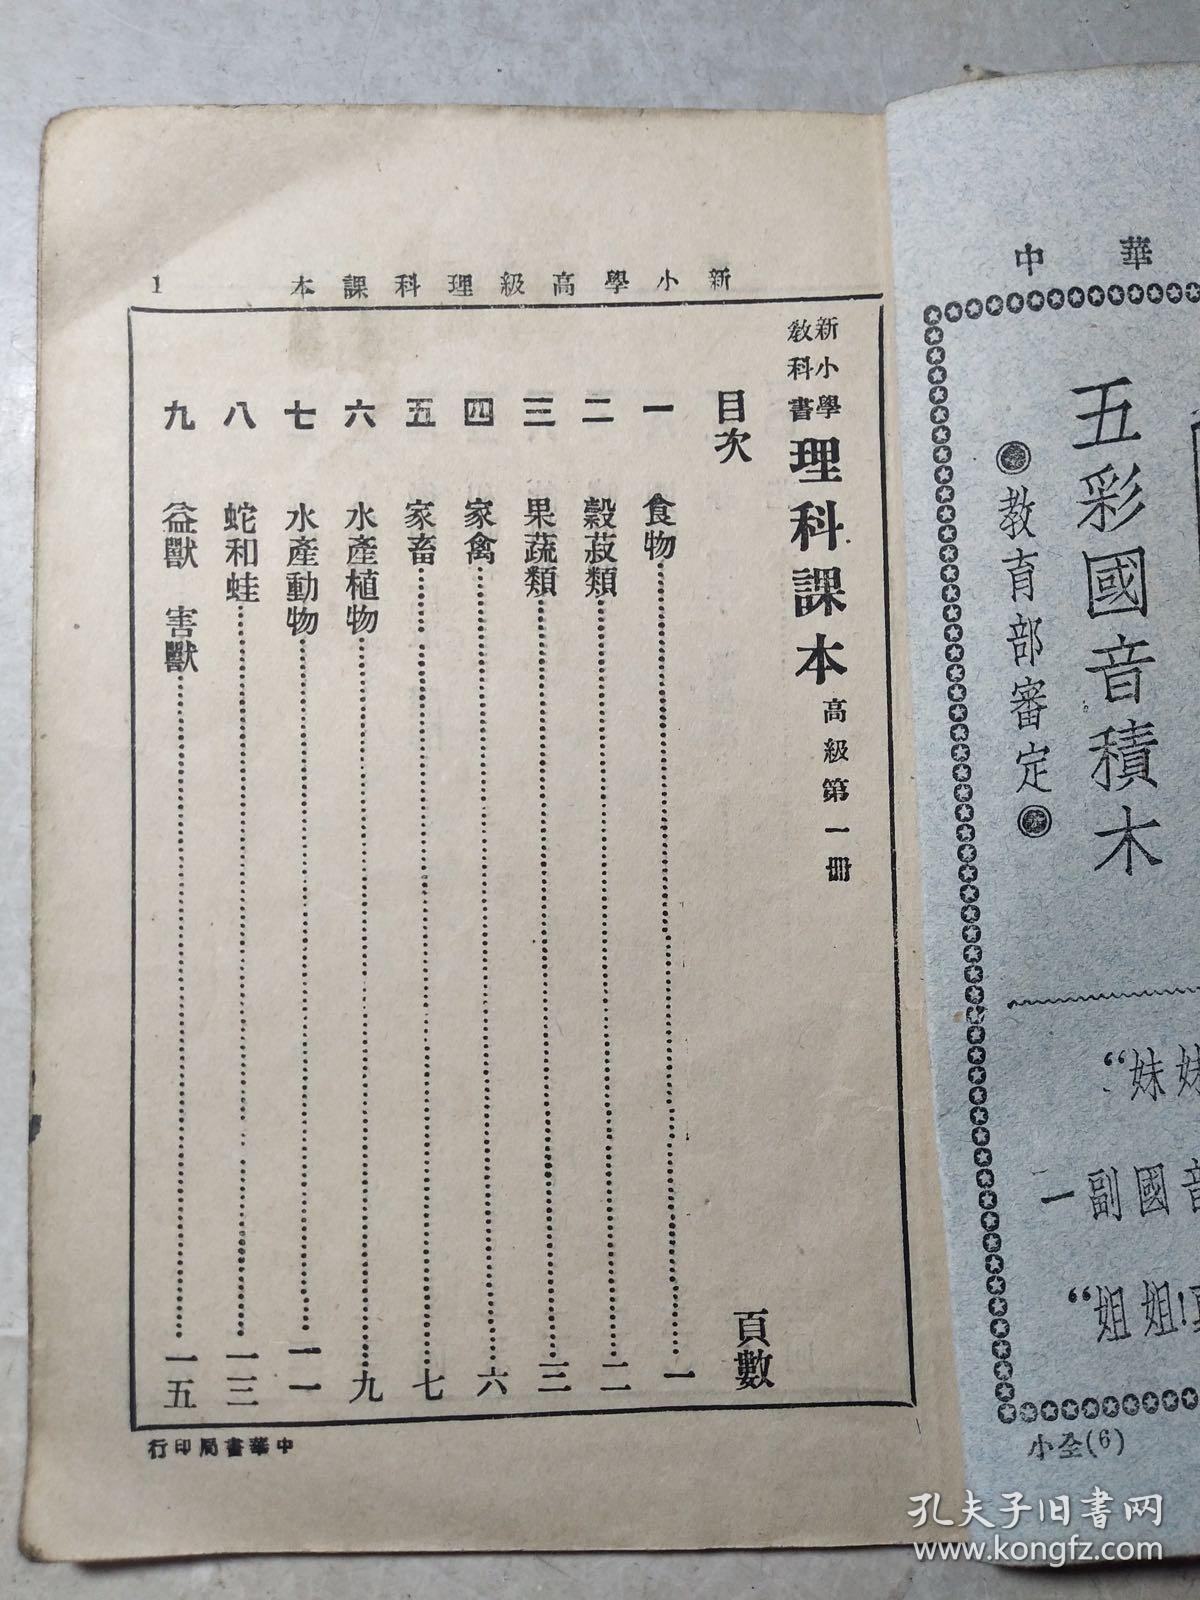 新小學高級理科課本
1
新小學
教科書
理科課本 高級第一冊
目次 頁數
一 食物 一
二 穀菽類 二
三 果蔬類 三
四 家禽 六
五 家畜 七
六 水產植物 九
七 水產動物 一一
八 蛇和蛙 一三
九 益獸 害獸 一五
中華書局印行
中華
五彩國音積木
教育部審定
“妹妹
一副國音
“姐姐!
小全(6)
孔夫子旧书网
www.kongfz.com